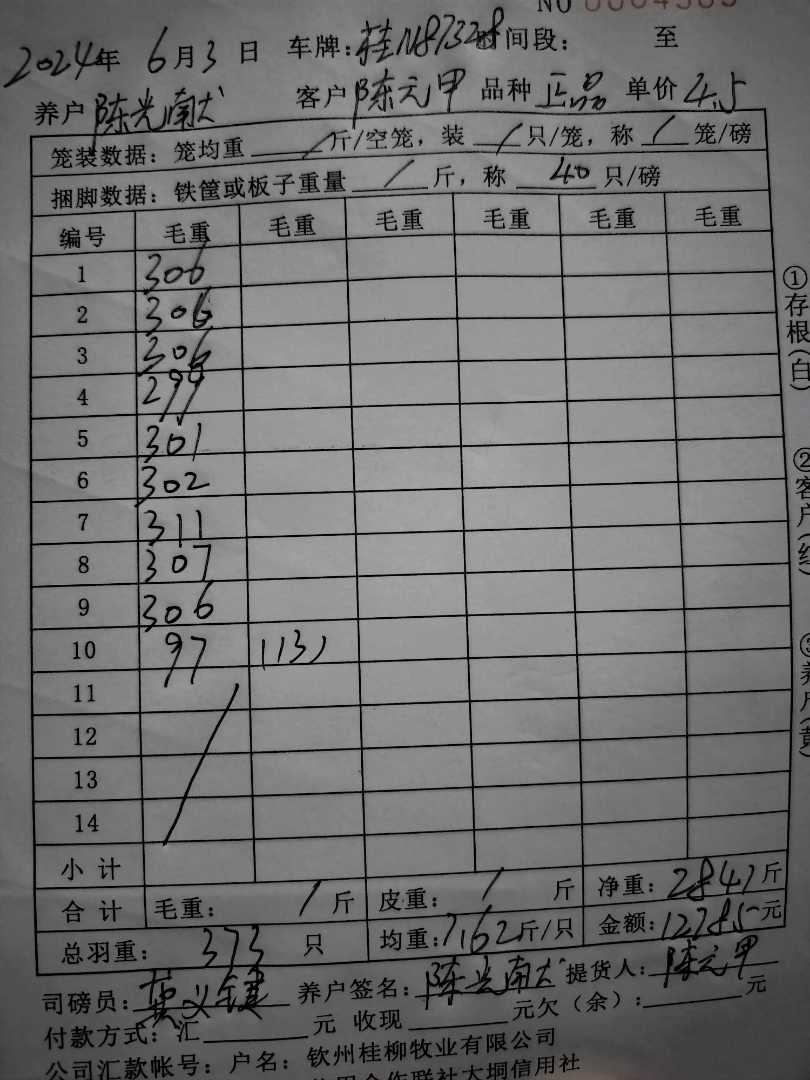 NO 0004505
2024年 6月3日 车牌:桂N87328 时间段: 至
养户 陈光南犬 客户 陈元甲 品种 正品 单价 4.5
笼装数据: 笼均重 / 斤/空笼, 装 / 只/笼, 称 / 笼/磅
捆脚数据: 铁筐或板子重量 / 斤, 称 40 只/磅
编号 毛重 毛重 毛重 毛重 毛重 毛重
1 306
2 306
3 306
4 299
5 301
6 302
7 311
8 307
9 306
10 97 (13)
11
12
13
14
小计
合计 毛重: / 斤 皮重: / 斤 净重: 2841斤
总羽重: 373 只 均重: 7.62斤/只 金额: 12785元
司磅员: 养户签名: 陈光南犬 提货人: 陈元甲
付款方式: 汇 元 收现 元欠(余): 元
公司汇款帐号: 户名: 钦州桂柳牧业有限公司
合作联社大垌信用社
①存根(白)
②客户(红)
③养户(黄)